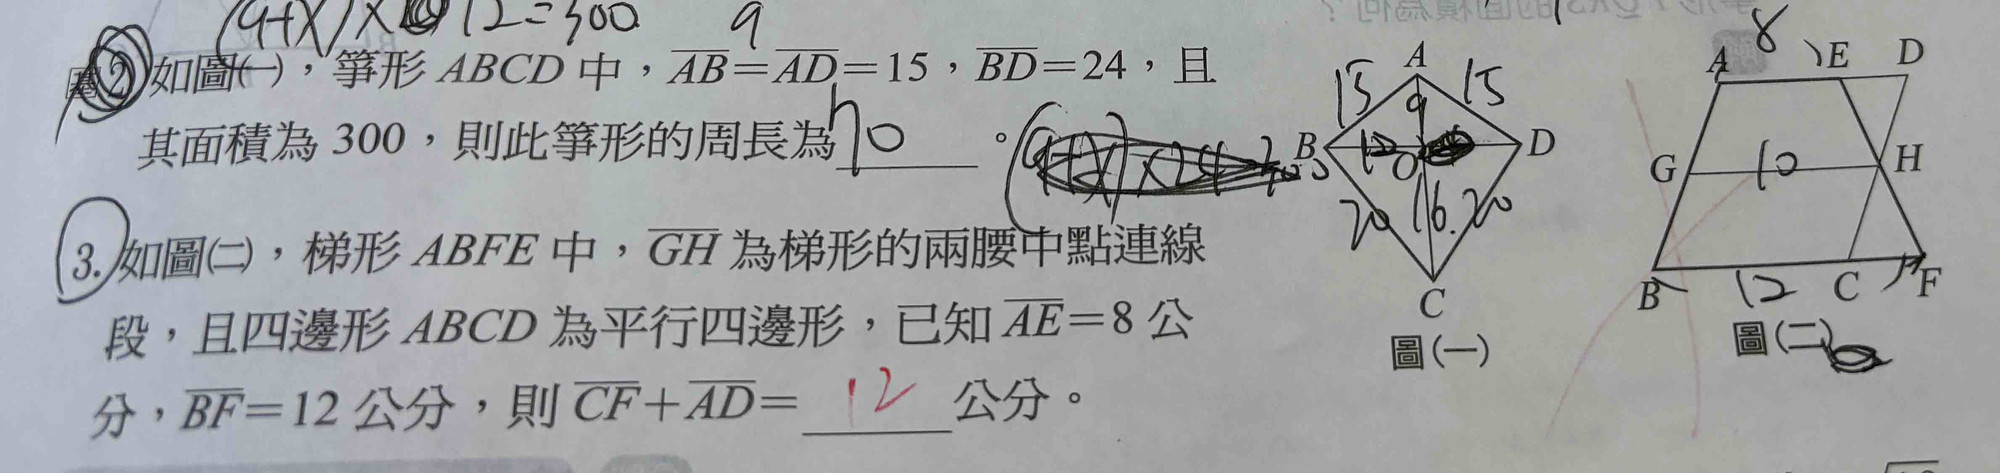 (9+x)×12=300
9
2. 如圖(一)，箏形 ABCD 中，AB=AD=15，BD=24，且
其面積為 300，則此箏形的周長為70。
3. 如圖(二)，梯形 ABFE 中，GH 為梯形的兩腰中點連線
段，且四邊形 ABCD 為平行四邊形，已知 AE=8 公
分，BF=12 公分，則 CF+AD= 12 公分。
A
15 9 15
B 12 O D
20 16 20
C
圖(一)
8
A E D
G 10 H
B 12 C F
圖(二)